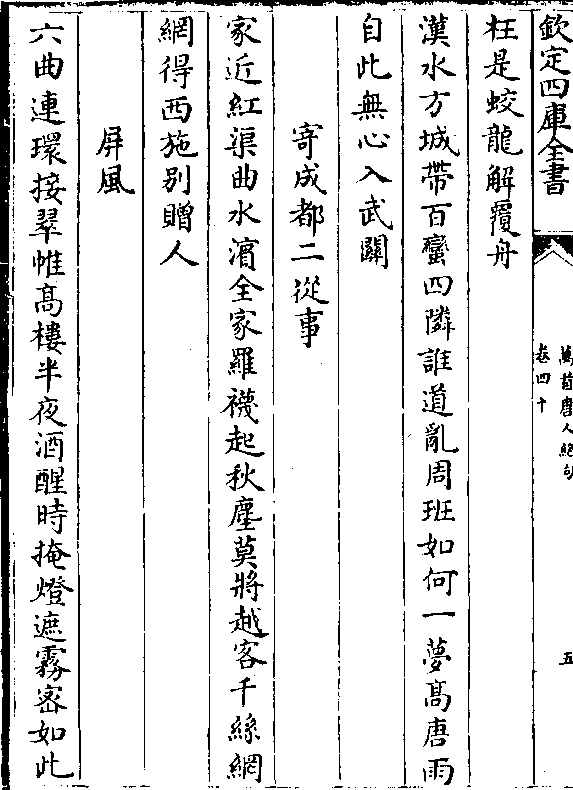 欽定四庫全書
萬首唐人絶句
卷四十
五
枉是蛟龍解覆舟
漢水方城帶百蠻四隣誰道亂周班如何一夢髙唐雨
自此無心入武闗
寄成都二從事
家近紅渠曲水濵全家羅襪起秋塵莫將越客千絲網
網得西施别贈人
屏風
六曲連環接翠帷髙樓半夜酒醒時掩燈遮霧宻如此